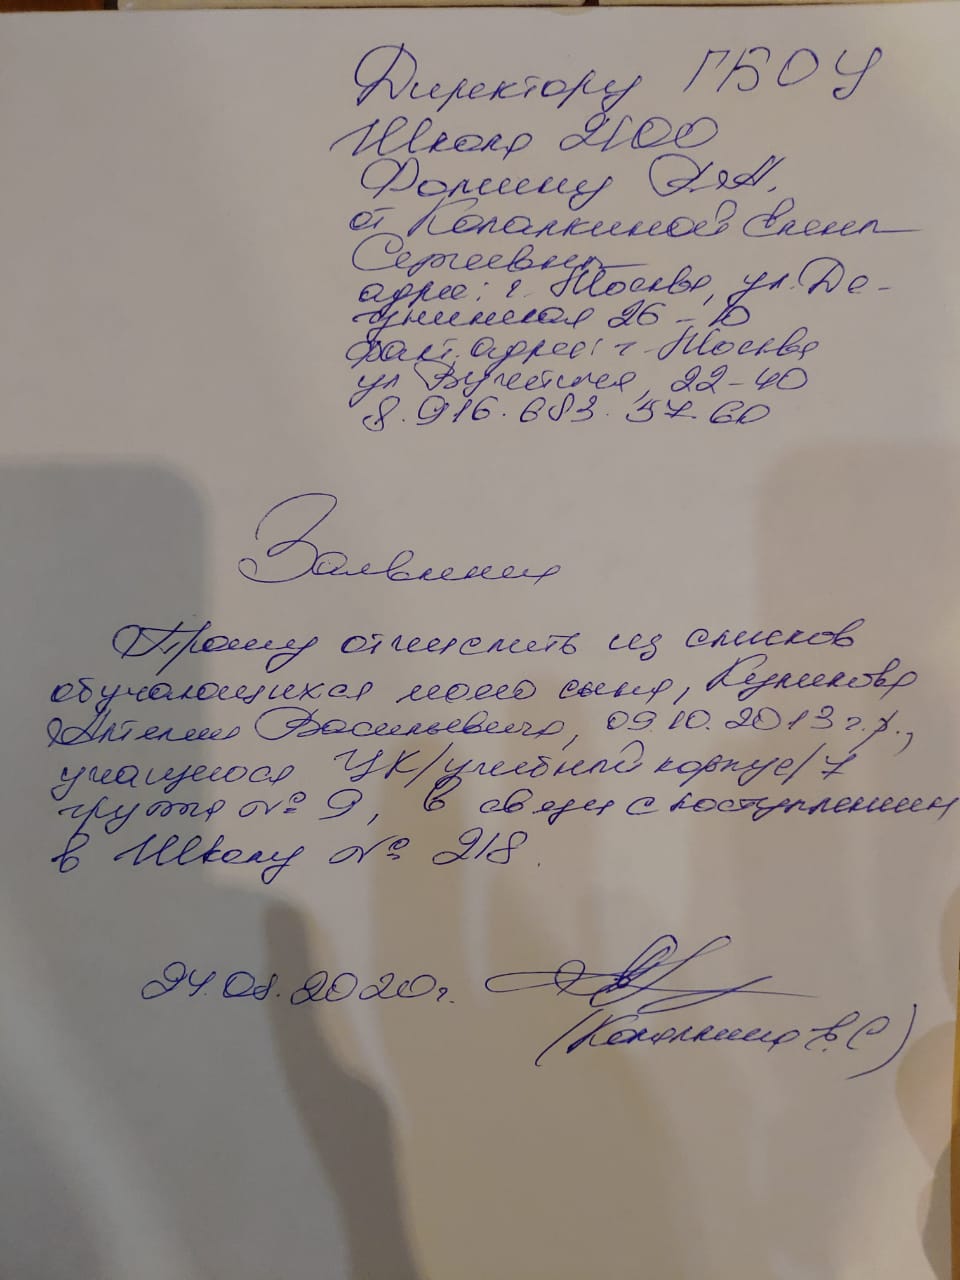 Директору ГБОУ
Школа 2100
Фомину Д.А.
от Копалкиной Елены
Сергеевны
адрес: г. Москва, ул. Де-
гунинская 26-10
факт. адрес: г. Москва
ул Вучетича, 22-40
8.916.683.37.60
Заявление
Прошу отчислить из списков
обучающихся моего сына, Куликова
Артемия Васильевича, 09.10.2013 г.р.,
учащегося УК/учебный корпус/7
группа № 9, в связи с поступлением
в Школу № 218.
24.08.2020г.
(Копалкина Е.С)